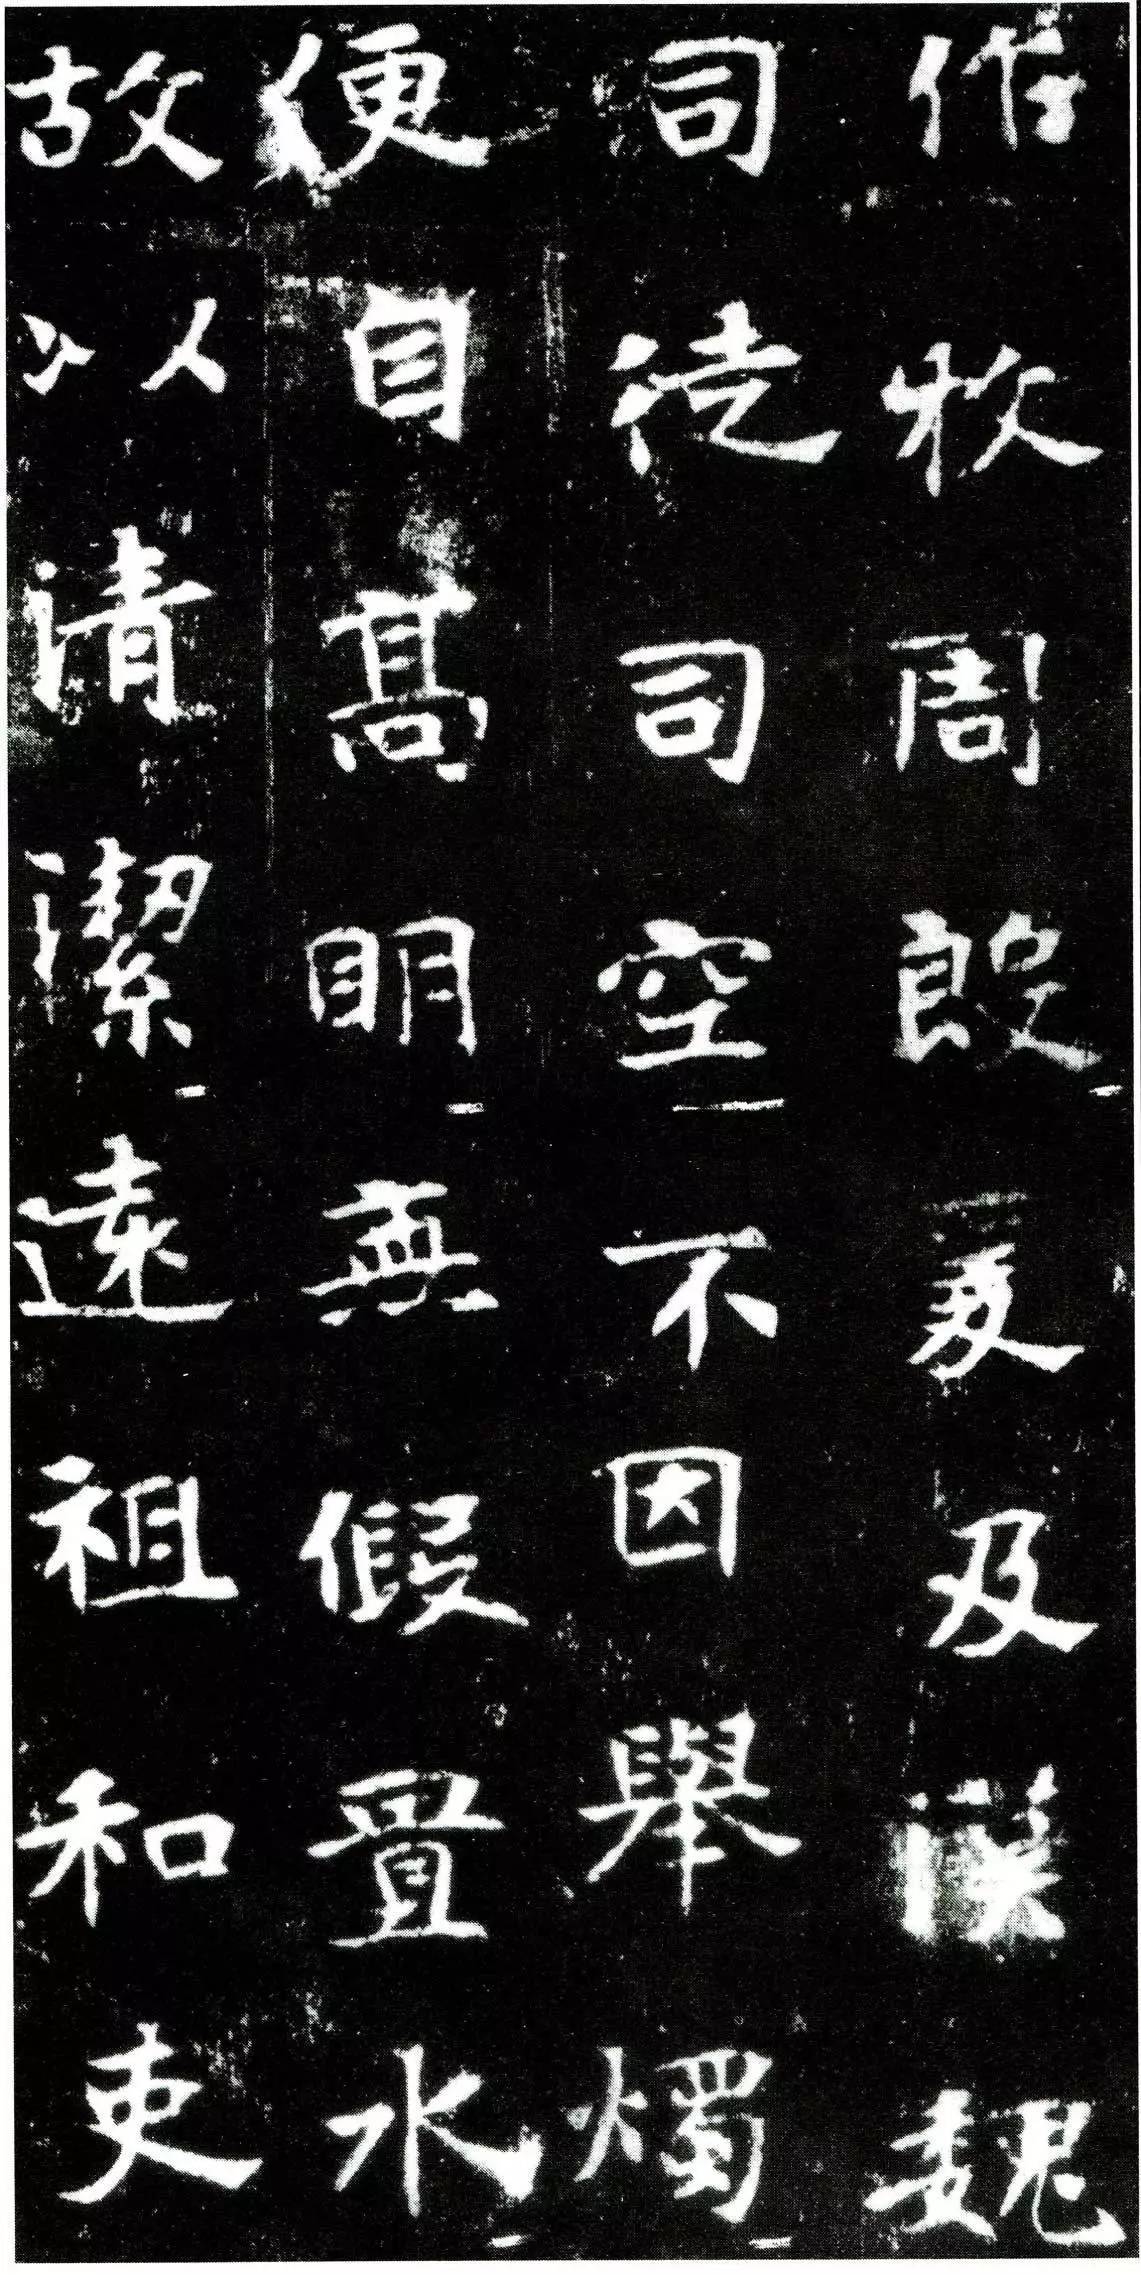 作牧周殷爰及漢魏
司徒司空不因舉燭
便自髙明無假置水
故以清潔遠祖和吏